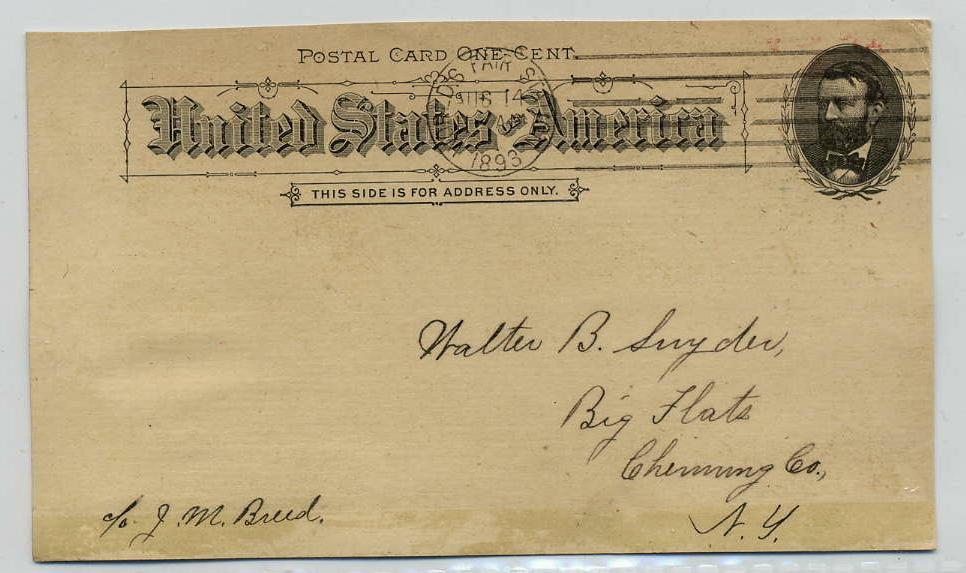 POSTAL CARD ONE CENT.
United States America
D'S FAIR
AUG 14
1893
THIS SIDE IS FOR ADDRESS ONLY.
Walter B. Snyder,
Big Flats
Chemung Co.,
N. Y.
c/o J. M. Breed.